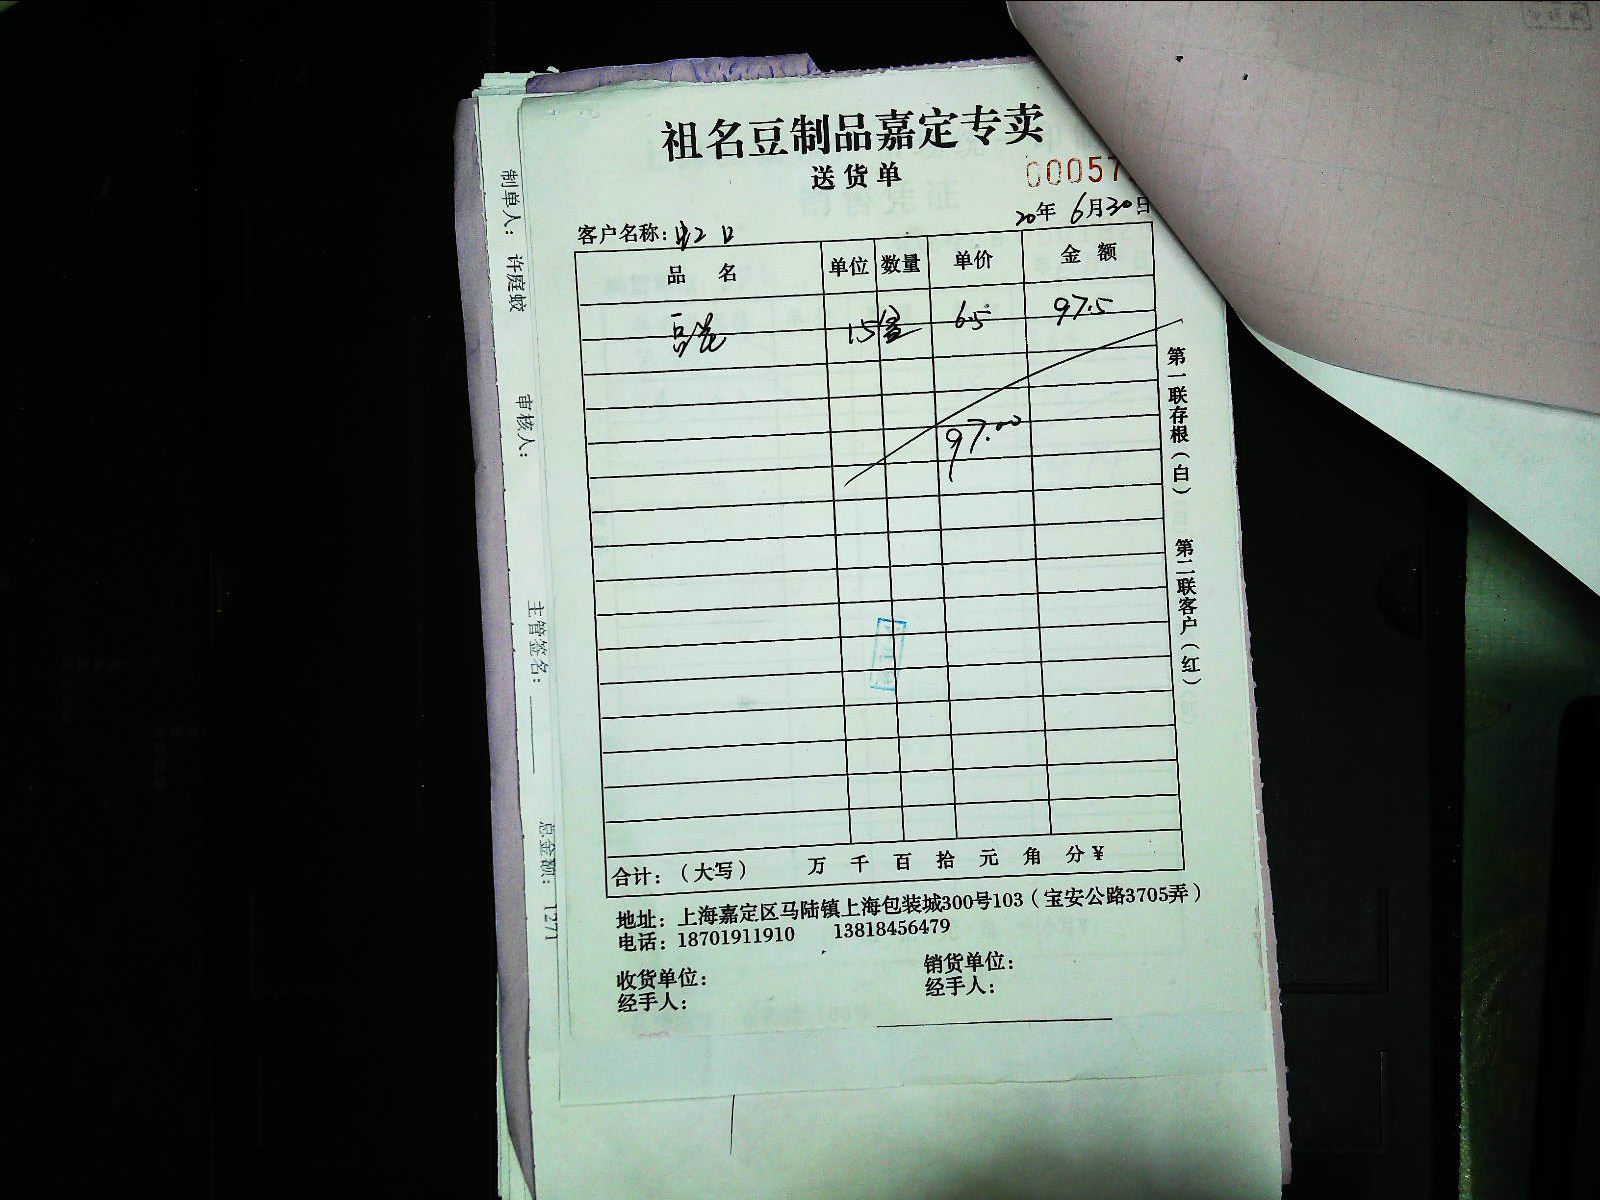 祖名豆制品嘉定专卖
送货单
00057
20年 6月30日
客户名称:虹口
品 名 单位 数量 单价 金 额
豆浆 15盒 6.5 97.5
97.00
合计:(大写) 万 千 百 拾 元 角 分 ¥
地址: 上海嘉定区马陆镇上海包装城300号103(宝安公路3705弄)
电话: 18701911910 13818456479
收货单位: 销货单位:
经手人: 经手人:
第一联存根(白) 第二联客户(红)
制单人: 许庭蛟 审核人: 主管签名: 总金额: 1271